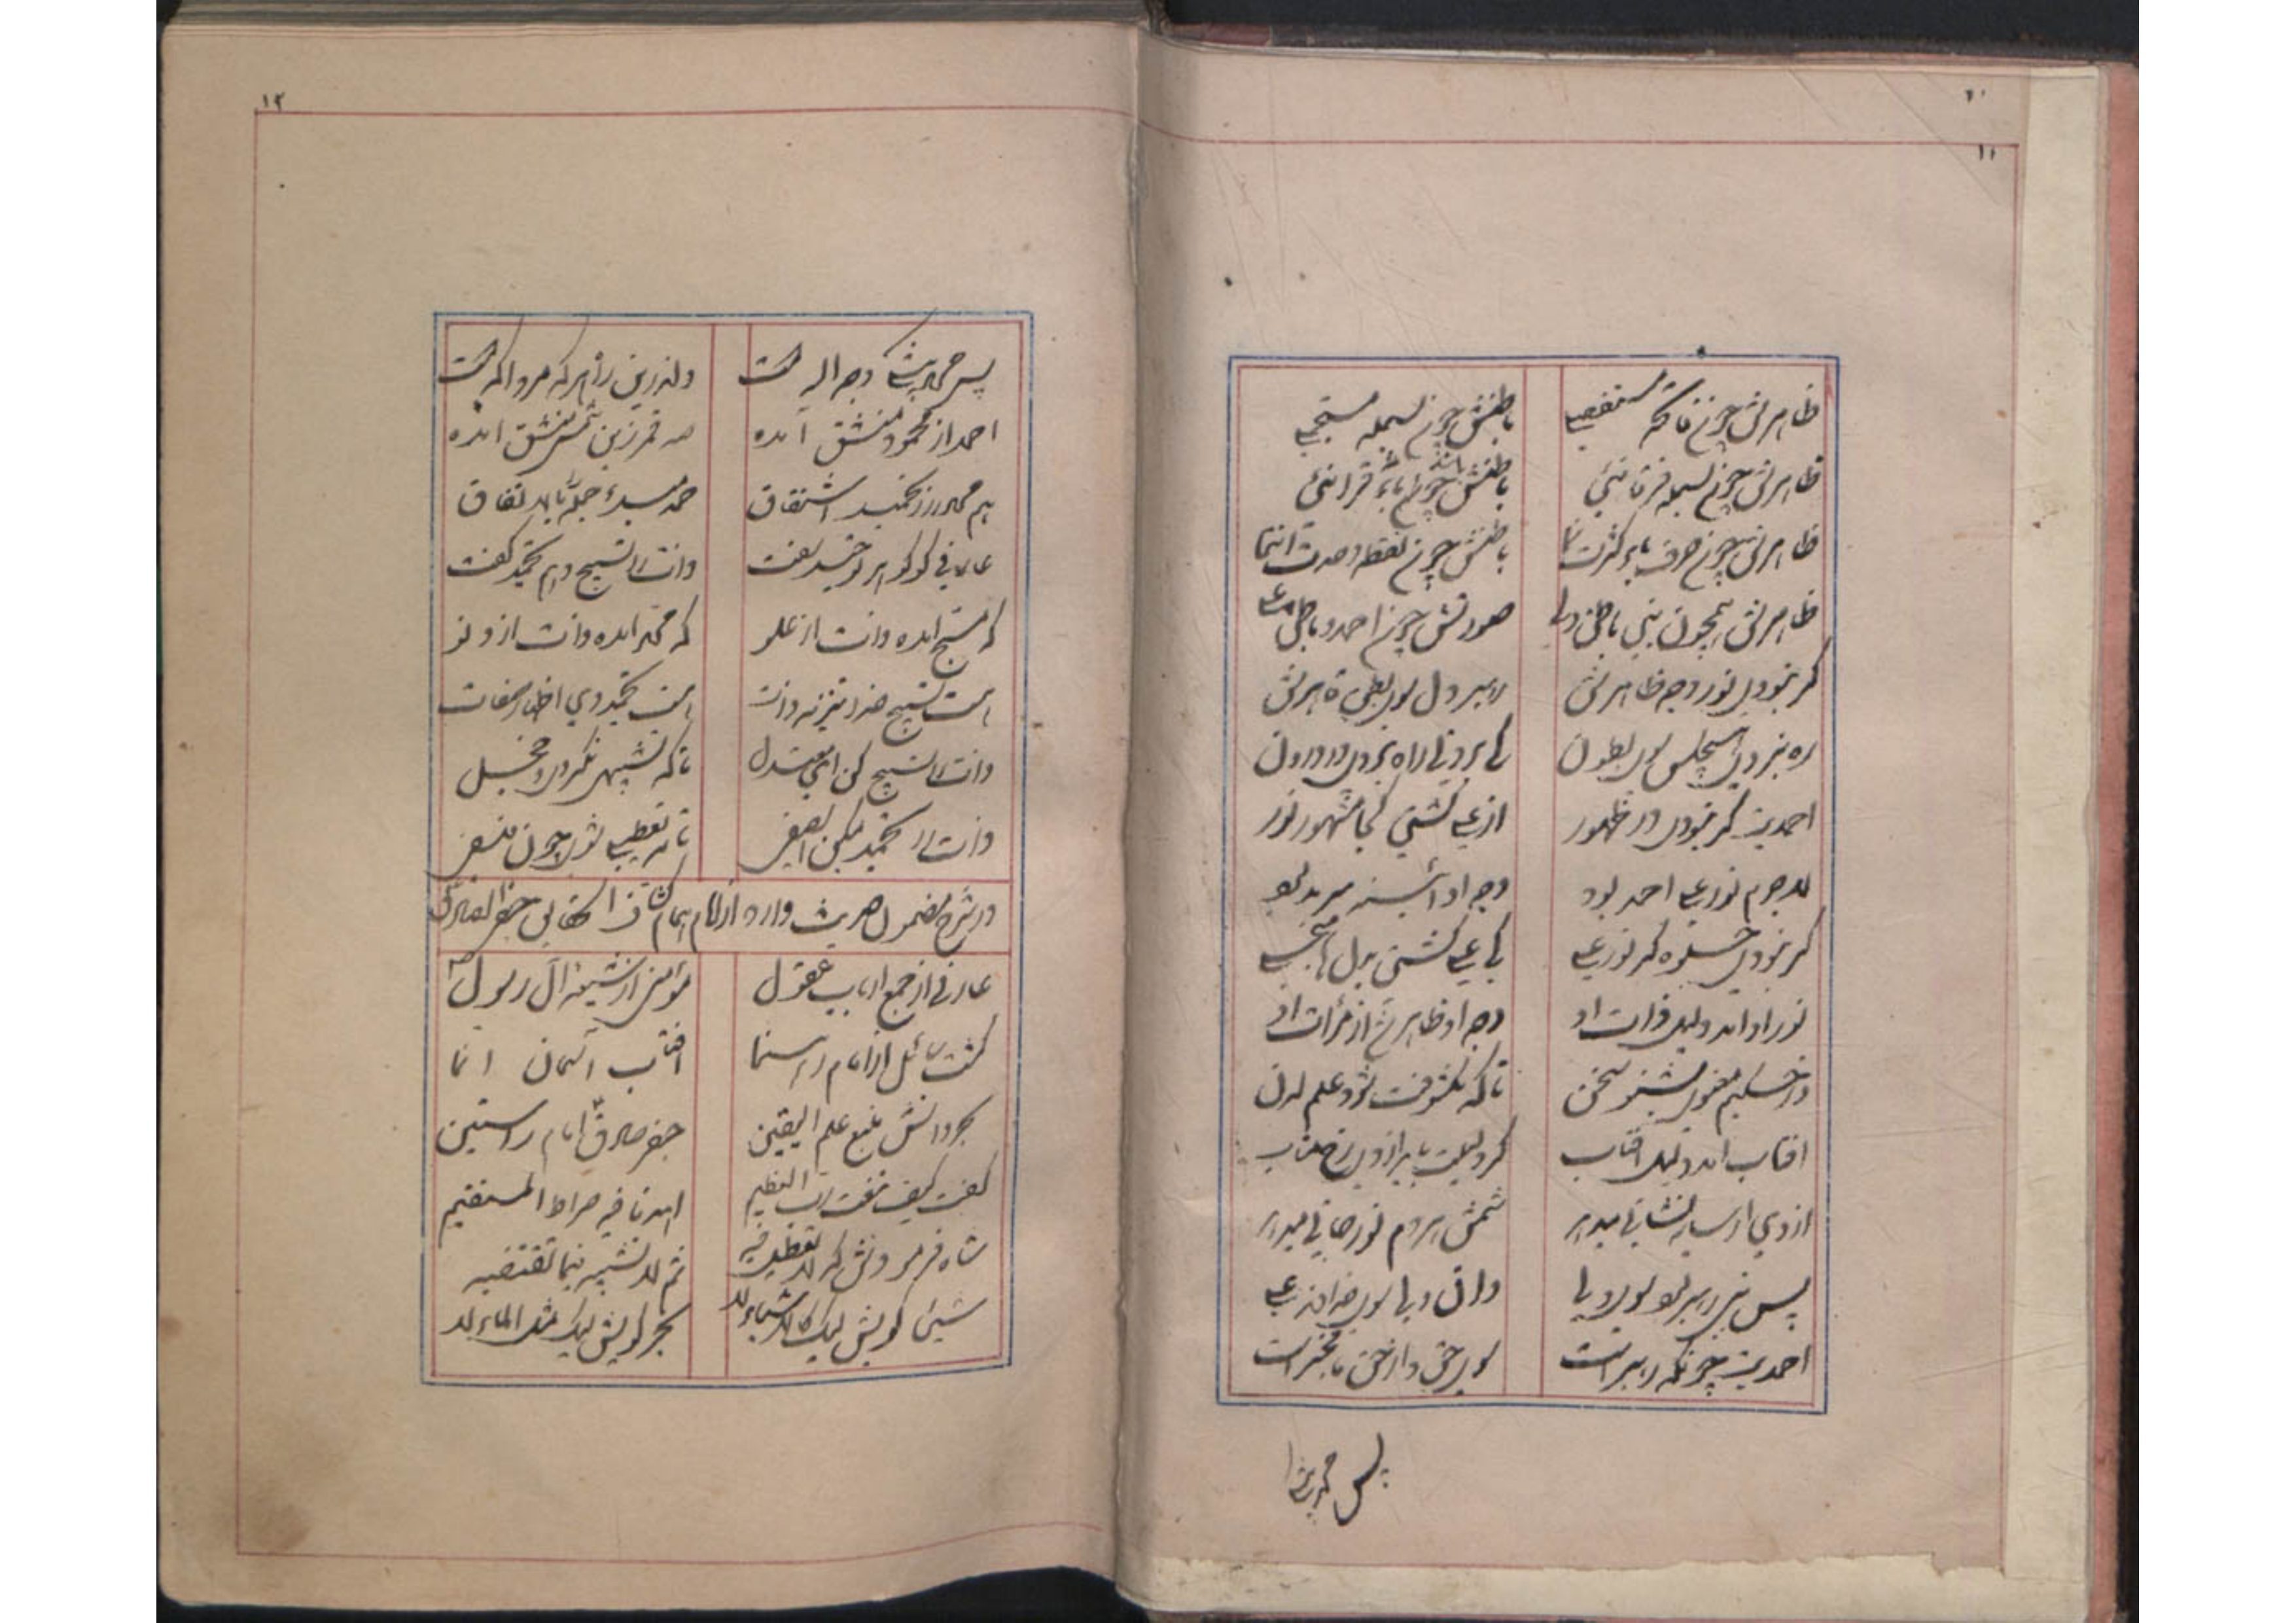 ۱۱
ظاهرش چون فاتحه مستقصی باطنش چون بسمله مستجمی
ظاهرش چون بسمله فرقانئی باطنش چون باء قرآنئی
ظاهرش چون حرف باء کثرت نما باطنش چون نقطه وحدت انتما
ظاهرش همچون نبی باطن ولی صورتش چون احمد و باطن علی
گر نبودی نور وجه ظاهرش رهبر دل سوی بطن قاهرش
ره نبردی هیچکس سوی بطون کی برونی راه بردی در درون
احمدیت گر نبودی در ظهور از علی گشتی کجا مشهور نور
لاجرم نور علی احمد بود وجه او آئینه سرمد بود
گر نبودی جلوه گر نور علی کی علی گشتی بدلها منجلی
نور او آمد دلیل ذات او وجه او ظاهر شد از مرآت او
در حکیم معنوی بشنو سخن تا که مکشوفت شود علم لدن
آفتاب آمد دلیل آفتاب گر دلیلت باید از وی رخ متاب
از وی ار سایه نشانی میدهد شمس هر دم نور جانی میدهد
پس نبی رهبر بود سوی ولی وان ولی سوی خداوند علی
احمدیت چونکه رهبر است سوی حق و از حق با خبر است
پس محمد شد
۱۲
پس محمد شد وجه اله است و اندرین راه هر که مرد آگه است
احمد از محمود منشق آمده مه قمر زین شمس منشق آمده
هم محمد را ز تحمید اشتقاق حمد مبدء جمله را باتفاق
عارفی کو گوهر توحید سفت ذات را تسبیح و هم تحمید گفت
که مسبح آمده ذات از علو که محمد آمده ذات از دنو
هست تسبیح خدا تنزیه ذات هست تحمید وی اظهار صفات
ذات را تسبیح کن ای معتدل تا که تشبیهی نگردی و خجل
ذات را تحمید میکن ای صفی تا نه تعطیلی شوی چون فلسفی
در شرح مضمون حدیث وارد از کلام امام کشاف الحقایق جعفر الصادق
عارفی از جمع ارباب عقول مؤمنی از شیعه آل رسول
گشت سائل از امام رهنما آفتاب آسمان انما
بحر دانش منبع علم الیقین جعفر صادق امام راستین
گفت کیف نعت رب العظیم اهدنا فیه صراط المستقیم
شاه فرمودش که لا تعطیل فیه ثم لا تشبیه فیما تقتضیه
شیئی گویش لیک کالاشیاء لا بحر گویش لیک مثل الماء لا